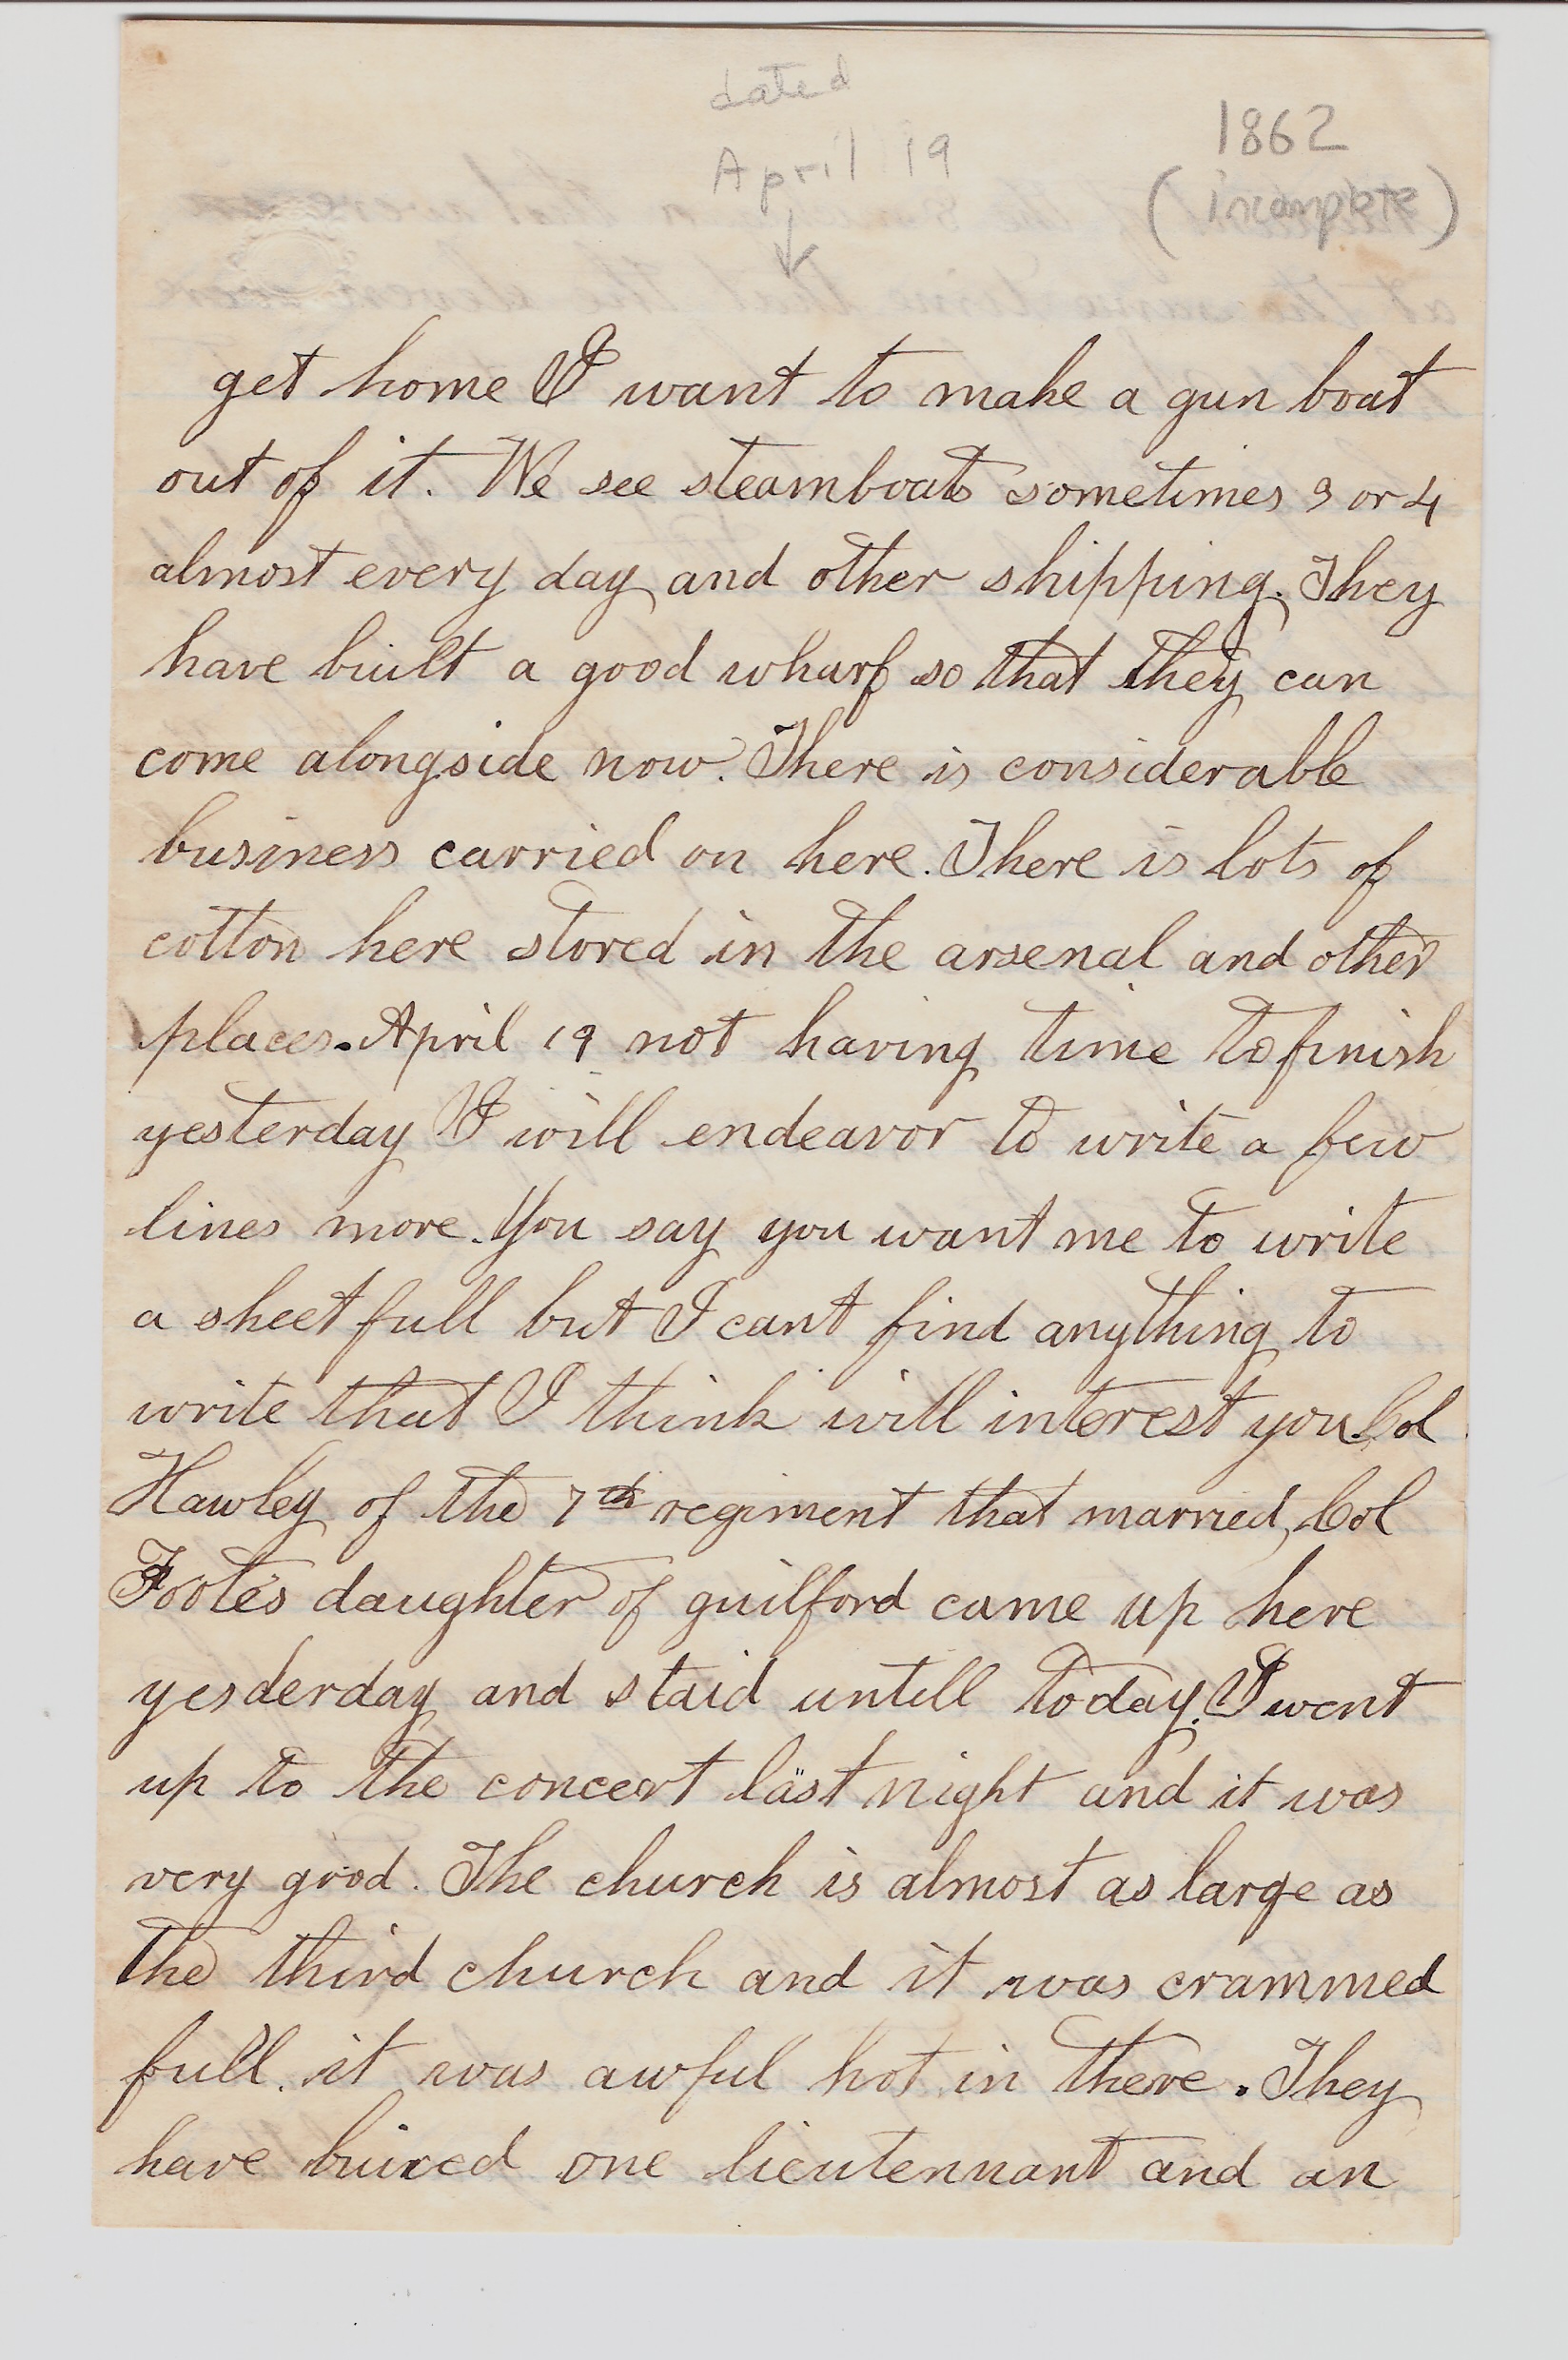 dated
April 19
↓
1862
(incomplete)
get home I want to make a gun boat
out of it. We see steamboats sometimes 3 or 4
almost every day and other shipping. They
have built a good wharf so that they can
come alongside now. There is considerable
business carried on here. There is lots of
cotton here stored in the arsenal and other
places. April 19 not having time to finish
yesterday I will endeavor to write a few
lines more. You say you want me to write
a sheet full but I cant find anything to
write that I think will interest you. Col
Hawley of the 7th regiment that married, Col
Foote's daughter of guilford came up here
yesderday and staid untill today. I went
up to the concert last night and it was
very good. The church is almost as large as
the third church and it was crammed
full. it was awful hot in there. They
have buired one lieutennant and an